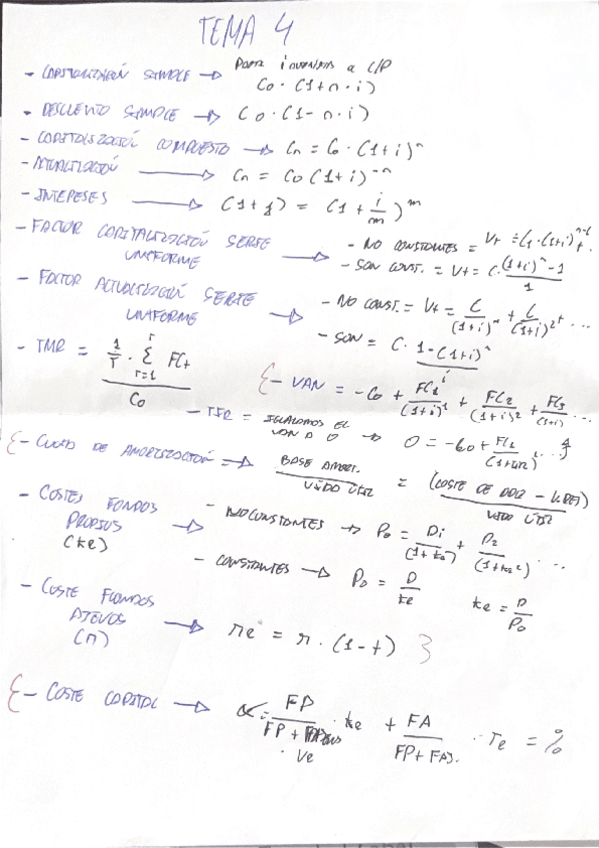 TEMA 4
- CAPITALIZACIÓN SIMPLE → Para inversión a C/P
Co · (1+n·i)
- DESCUENTO SIMPLE → Co · (1-n·i)
- CAPITALIZACIÓN COMPUESTO → Cn = Co · (1+i)^n
- ACTUALIZACIÓN → Cn = Co (1+i)^-n
- INTERESES → (1+i) = (1+i/m)^m
- FACTOR CAPITALIZACIÓN SERIE UNIFORME → - NO CONSTANTES = Vt = C1·(1+i)^n-1 + .
- SON CONST. = Vt = C·(1+i)^n - 1 / 1
- FACTOR ACTUALIZACIÓN SERIE UNIFORME → - NO CONST. = Vt = C/(1+i)^n + C/(1+i)^2 + ...
- SON = C · 1-(1+i)^n / i
- TMR = 1/T · Σ r=1 FCt / Co
{- VAN = -Co + FC1/(1+i)^1 + FC2/(1+i)^2 + FC3/(1+i)
- TIR = IGUALAMOS EL VAN A 0 → 0 = -Co + FC1/(1+TIR)^1 ...
{- CUOTA DE AMORTIZACIÓN = → BASE AMORT. / VIDA ÚTIL = (COSTE DE ADQ - V.RES) / VIDA ÚTIL
- COSTES FONDOS PROPIOS (ke) → - NO CONSTANTES → Po = Di/(1+ke) + D2/(1+ke^2) ...
- CONSTANTES → Po = D/ke ke = D/Po
- COSTE FONDOS AJENOS (ri) → re = ri · (1-t) }
{- COSTE CAPITAL → FP / FP + · ke + FA / FP + FAJ. · re = %